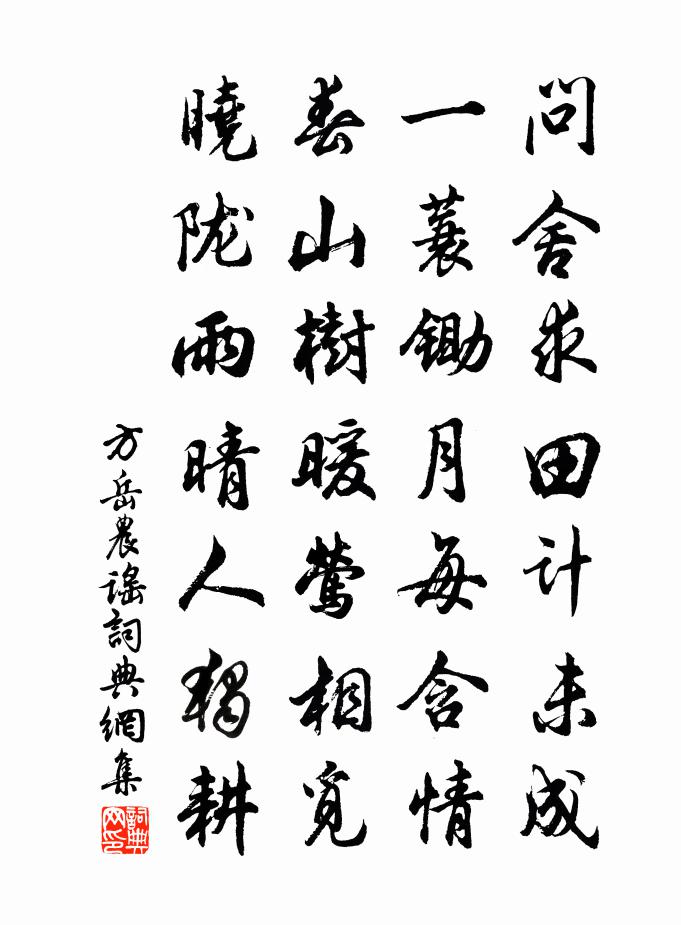 問舍求田计未成
一蓑鋤月每含情
春山樹暖鶯相覓
曉陇雨晴人獨耕
方岳農謡詞典網集
詞典网印